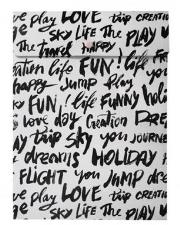 play LOVE trip CREATION
UP SKY LIFE The PLAY
The travel HAPPY
life FUN! life FUN!
happy Jump Play
SKY FUN! life FUNNY
LOVE day Creation DRE
trip SKY you JOURNEY
dreams HOLIDAY
FLIGHT you Jump dream
play LOVE trip CREATION
SKY LIFE The PLAY